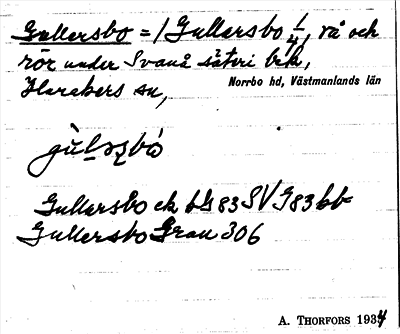 Gullersbo = / Gullersbo 1/4, rå och
rör under Svanå säteri bek,
Harakers sn,
Norrbo hd, Västmanlands län
Gullersbo ek bl 83 SV J 83 bb
Gullersbo Grau 306
A. THORFORS 1934